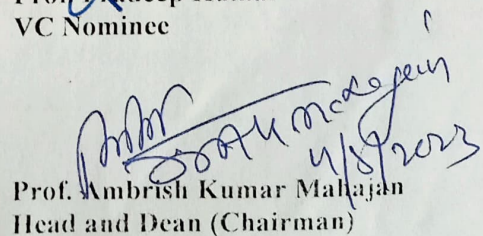 VC Nominee
4/8/2023
Prof. Ambrish Kumar Mahajan
Head and Dean (Chairman)